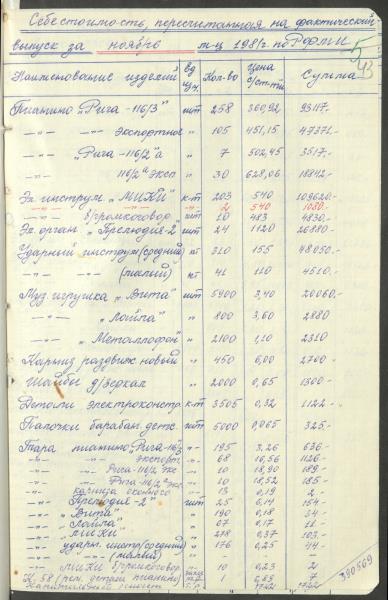 Себестоимость, пересчитанная на фактический
выпуск за ноябрь м-ц 1981г. по РФМИ
43
Наименование изделий ед. изм. Кол-во Цена с/ст-ти Сумма
Пианино „Рига-116/3" шт 258 360,92 93117.-
-„- -„- экспортное „ 105 451,15 47371.-
-„- „Рига-116/2"а „ 7 502,45 3517.-
-„- 116/2"а эксп „ 30 628,06 18842.-
Эл. инструм. „МИКИ" к-т 203 540 109620.-
-„- -„- „ 2 540 1080.-
-„- б/громкоговор шт 10 483 4830.-
Эл. орган „Прелюдия-2" шт 24 1120 26880.-
Ударный инструм(средний) кт 310 155 48050.-
-„- -„- (малый) кт 41 110 4510.-
Муз игрушка „Вита" шт 5900 3,40 20060.-
-„- „Лайла" „ 800 3,60 2880
-„- „Металлофон" „ 2100 1,10 2310
Карниз раздвиж. новый „ 450 6,00 2700 -
Шайбы д/зеркал „ 2000 0,65 1300-
Детали электроконстр. к-т 3505 0,32 1122.-
Палочки барабан. детс. шт 5000 0,065 325.-
Тара пианино „Рига-116/3 „ 195 3,26 636.-
-„- -„- экспорт „ 68 16,56 1126.-
-„- -„- Рига-116/2 экс „ 10 18,90 189.-
-„- -„- Рига-116/2а экс „ 10 18,52 185.-
-„- карниза оконного „ 13 0,19 2.-
-„- „Прелюдия-2" шт 25 6,14 154.-
-„- „Вита" „ 190 0,18 34.-
-„- „Лайла" „ 67 0,17 11.-
-„- „МИКИ" „ 278 0,37 103.-
-„- ударн. инстр(средний) „ 176 0,25 44.-
-„- -„- (малый) „
-„- МИКИ б/громкогов „ 10 0,23 2
К. 58 (рем. детали пианино) 1 6,69 7
Капитальный ремонт
390569